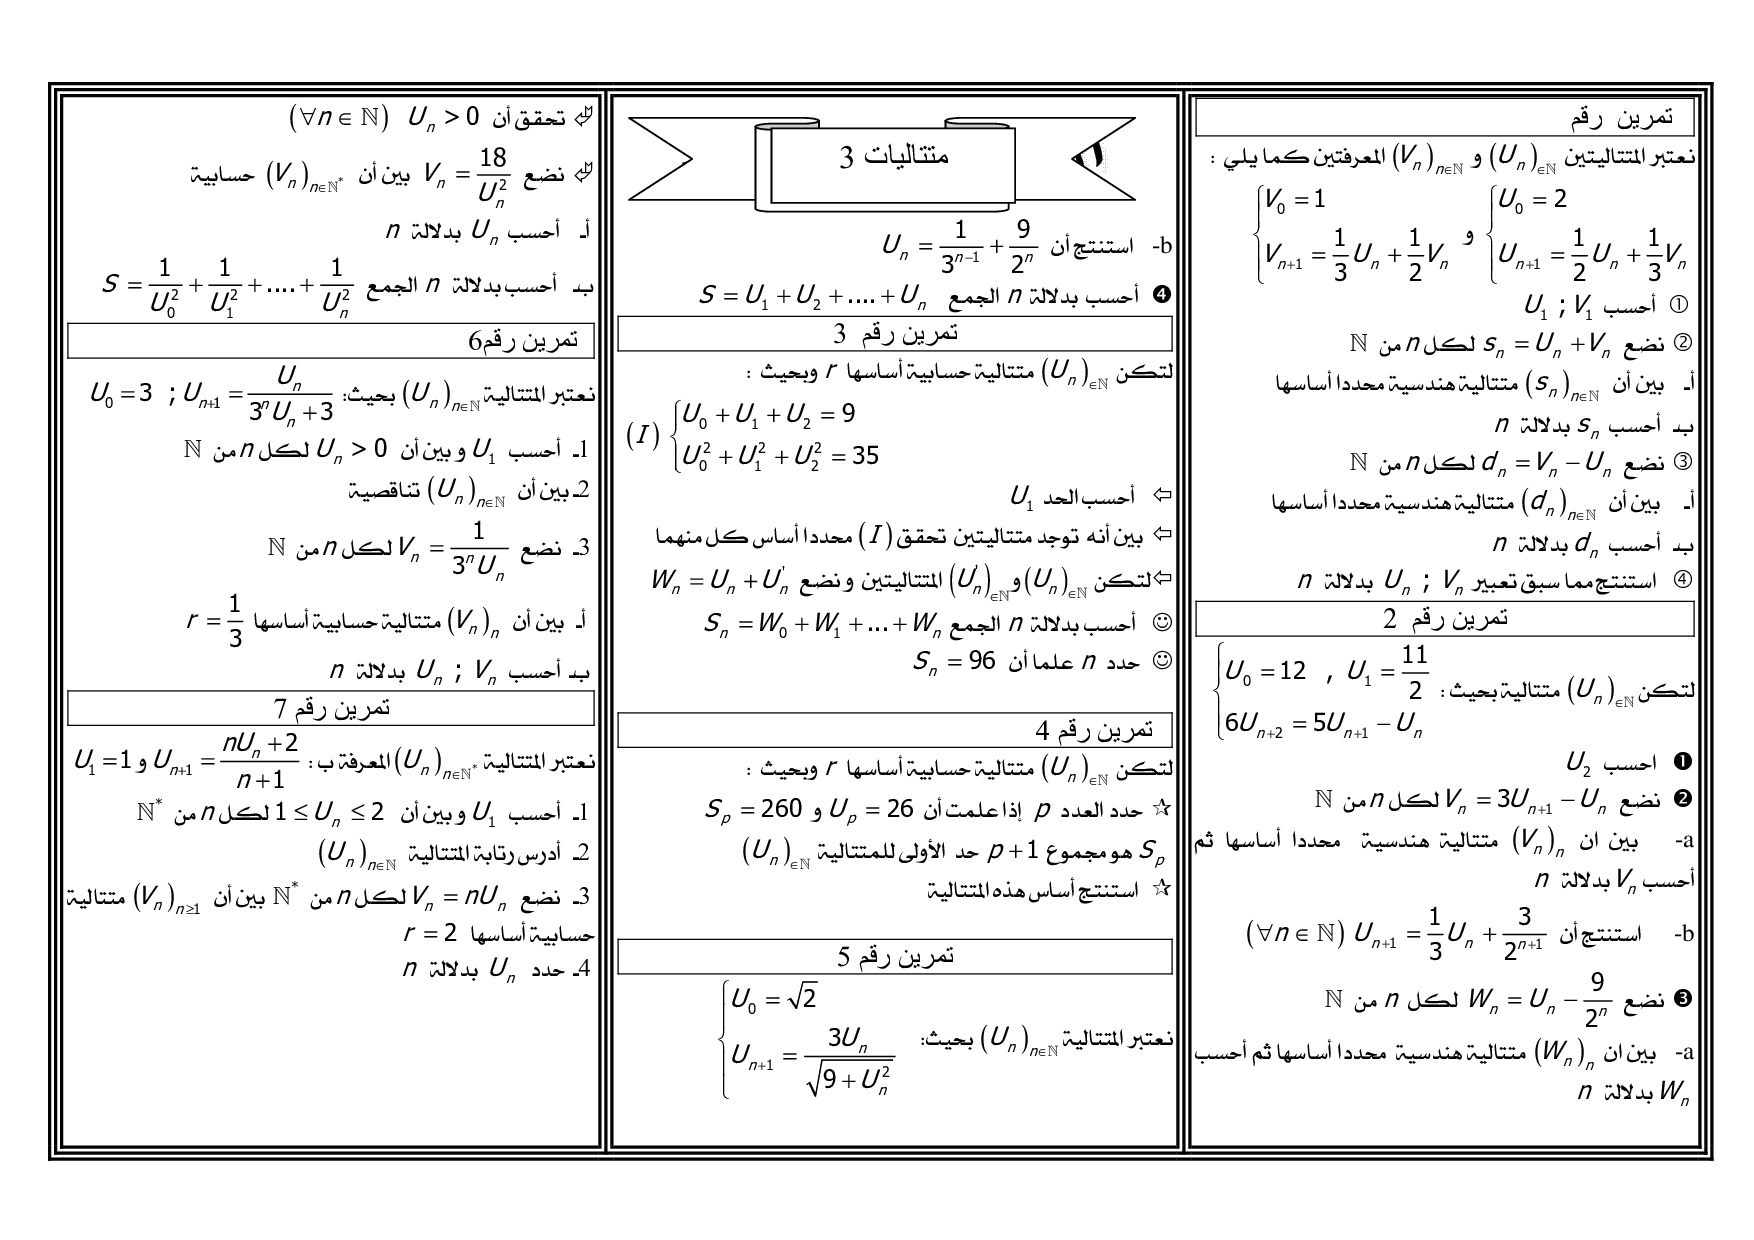 تمرين رقم
نعتبر المتتاليتين (U_n)_{∈ℕ} و (V_n)_{n∈ℕ} المعرفتين كما يلي :
{ U_0 = 2 ; U_{n+1} = 1/2 U_n + 1/3 V_n و { V_0 = 1 ; V_{n+1} = 1/3 U_n + 1/2 V_n
① أحسب U_1 ; V_1
② نضع s_n = U_n + V_n لكل n من ℕ
أـ بين أن (s_n)_{n∈ℕ} متتالية هندسية محددا أساسها
بـ أحسب s_n بدلالة n
③ نضع d_n = V_n − U_n لكل n من ℕ
أـ بين أن (d_n)_{n∈ℕ} متتالية هندسية محددا أساسها
بـ أحسب d_n بدلالة n
④ استنتج مما سبق تعبير U_n ; V_n بدلالة n
تمرين رقم 2
لتكن (U_n)_{∈ℕ} متتالية بحيث : { U_0 = 12 , U_1 = 11/2 ; 6U_{n+2} = 5U_{n+1} − U_n
❶ احسب U_2
❷ نضع V_n = 3U_{n+1} − U_n لكل n من ℕ
a- بين ان (V_n)_n متتالية هندسية محددا أساسها ثم
أحسب V_n بدلالة n
b- استنتج أن U_{n+1} = 1/3 U_n + 3/2^{n+1} (∀n ∈ ℕ)
❸ نضع W_n = U_n − 9/2^n لكل n من ℕ
a- بين ان (W_n)_n متتالية هندسية محددا أساسها ثم أحسب
W_n بدلالة n
متتاليات 3
b- استنتج أن U_n = 1/3^{n−1} + 9/2^n
❹ أحسب بدلالة n الجمع S = U_1 + U_2 + .... + U_n
تمرين رقم 3
لتكن (U_n)_{∈ℕ} متتالية حسابية أساسها r وبحيث :
(I) { U_0 + U_1 + U_2 = 9 ; U_0^2 + U_1^2 + U_2^2 = 35
⇦ أحسب الحد U_1
⇦ بين أنه توجد متتاليتين تحقق (I) محددا أساس كل منهما
⇦ لتكن (U_n)_{∈ℕ} و (U'_n)_{∈ℕ} المتتاليتين ونضع W_n = U_n + U'_n
☺ أحسب بدلالة n الجمع S_n = W_0 + W_1 + ... + W_n
☺ حدد n علما أن S_n = 96
تمرين رقم 4
لتكن (U_n)_{∈ℕ} متتالية حسابية أساسها r وبحيث :
☆ حدد العدد p إذا علمت أن U_p = 26 و S_p = 260
S_p هو مجموع p+1 حد الأولى للمتتالية (U_n)_{∈ℕ}
☆ استنتج أساس هذه المتتالية
تمرين رقم 5
نعتبر المتتالية (U_n)_{n∈ℕ} بحيث: { U_0 = √2 ; U_{n+1} = 3U_n / √(9 + U_n^2)
تحقق أن U_n > 0 (∀n ∈ ℕ)
نضع V_n = 18/U_n^2 بين أن (V_n)_{n∈ℕ*} حسابية
أـ أحسب U_n بدلالة n
بـ أحسب بدلالة n الجمع S = 1/U_0^2 + 1/U_1^2 + .... + 1/U_n^2
تمرين رقم6
نعتبر المتتالية (U_n)_{n∈ℕ} بحيث: U_0 = 3 ; U_{n+1} = U_n / (3^n U_n + 3)
1ـ أحسب U_1 وبين أن U_n > 0 لكل n من ℕ
2ـ بين أن (U_n)_{n∈ℕ} تناقصية
3ـ نضع V_n = 1/(3^n U_n) لكل n من ℕ
أـ بين أن (V_n)_n متتالية حسابية أساسها r = 1/3
بـ أحسب U_n ; V_n بدلالة n
تمرين رقم 7
نعتبر المتتالية (U_n)_{n∈ℕ*} المعرفة ب : U_{n+1} = (nU_n + 2)/(n + 1) و U_1 = 1
1ـ أحسب U_1 وبين أن 1 ≤ U_n ≤ 2 لكل n من ℕ*
2ـ أدرس رتابة المتتالية (U_n)_{n∈ℕ}
3ـ نضع V_n = nU_n لكل n من ℕ* بين أن (V_n)_{n≥1} متتالية
حسابية أساسها r = 2
4ـ حدد U_n بدلالة n